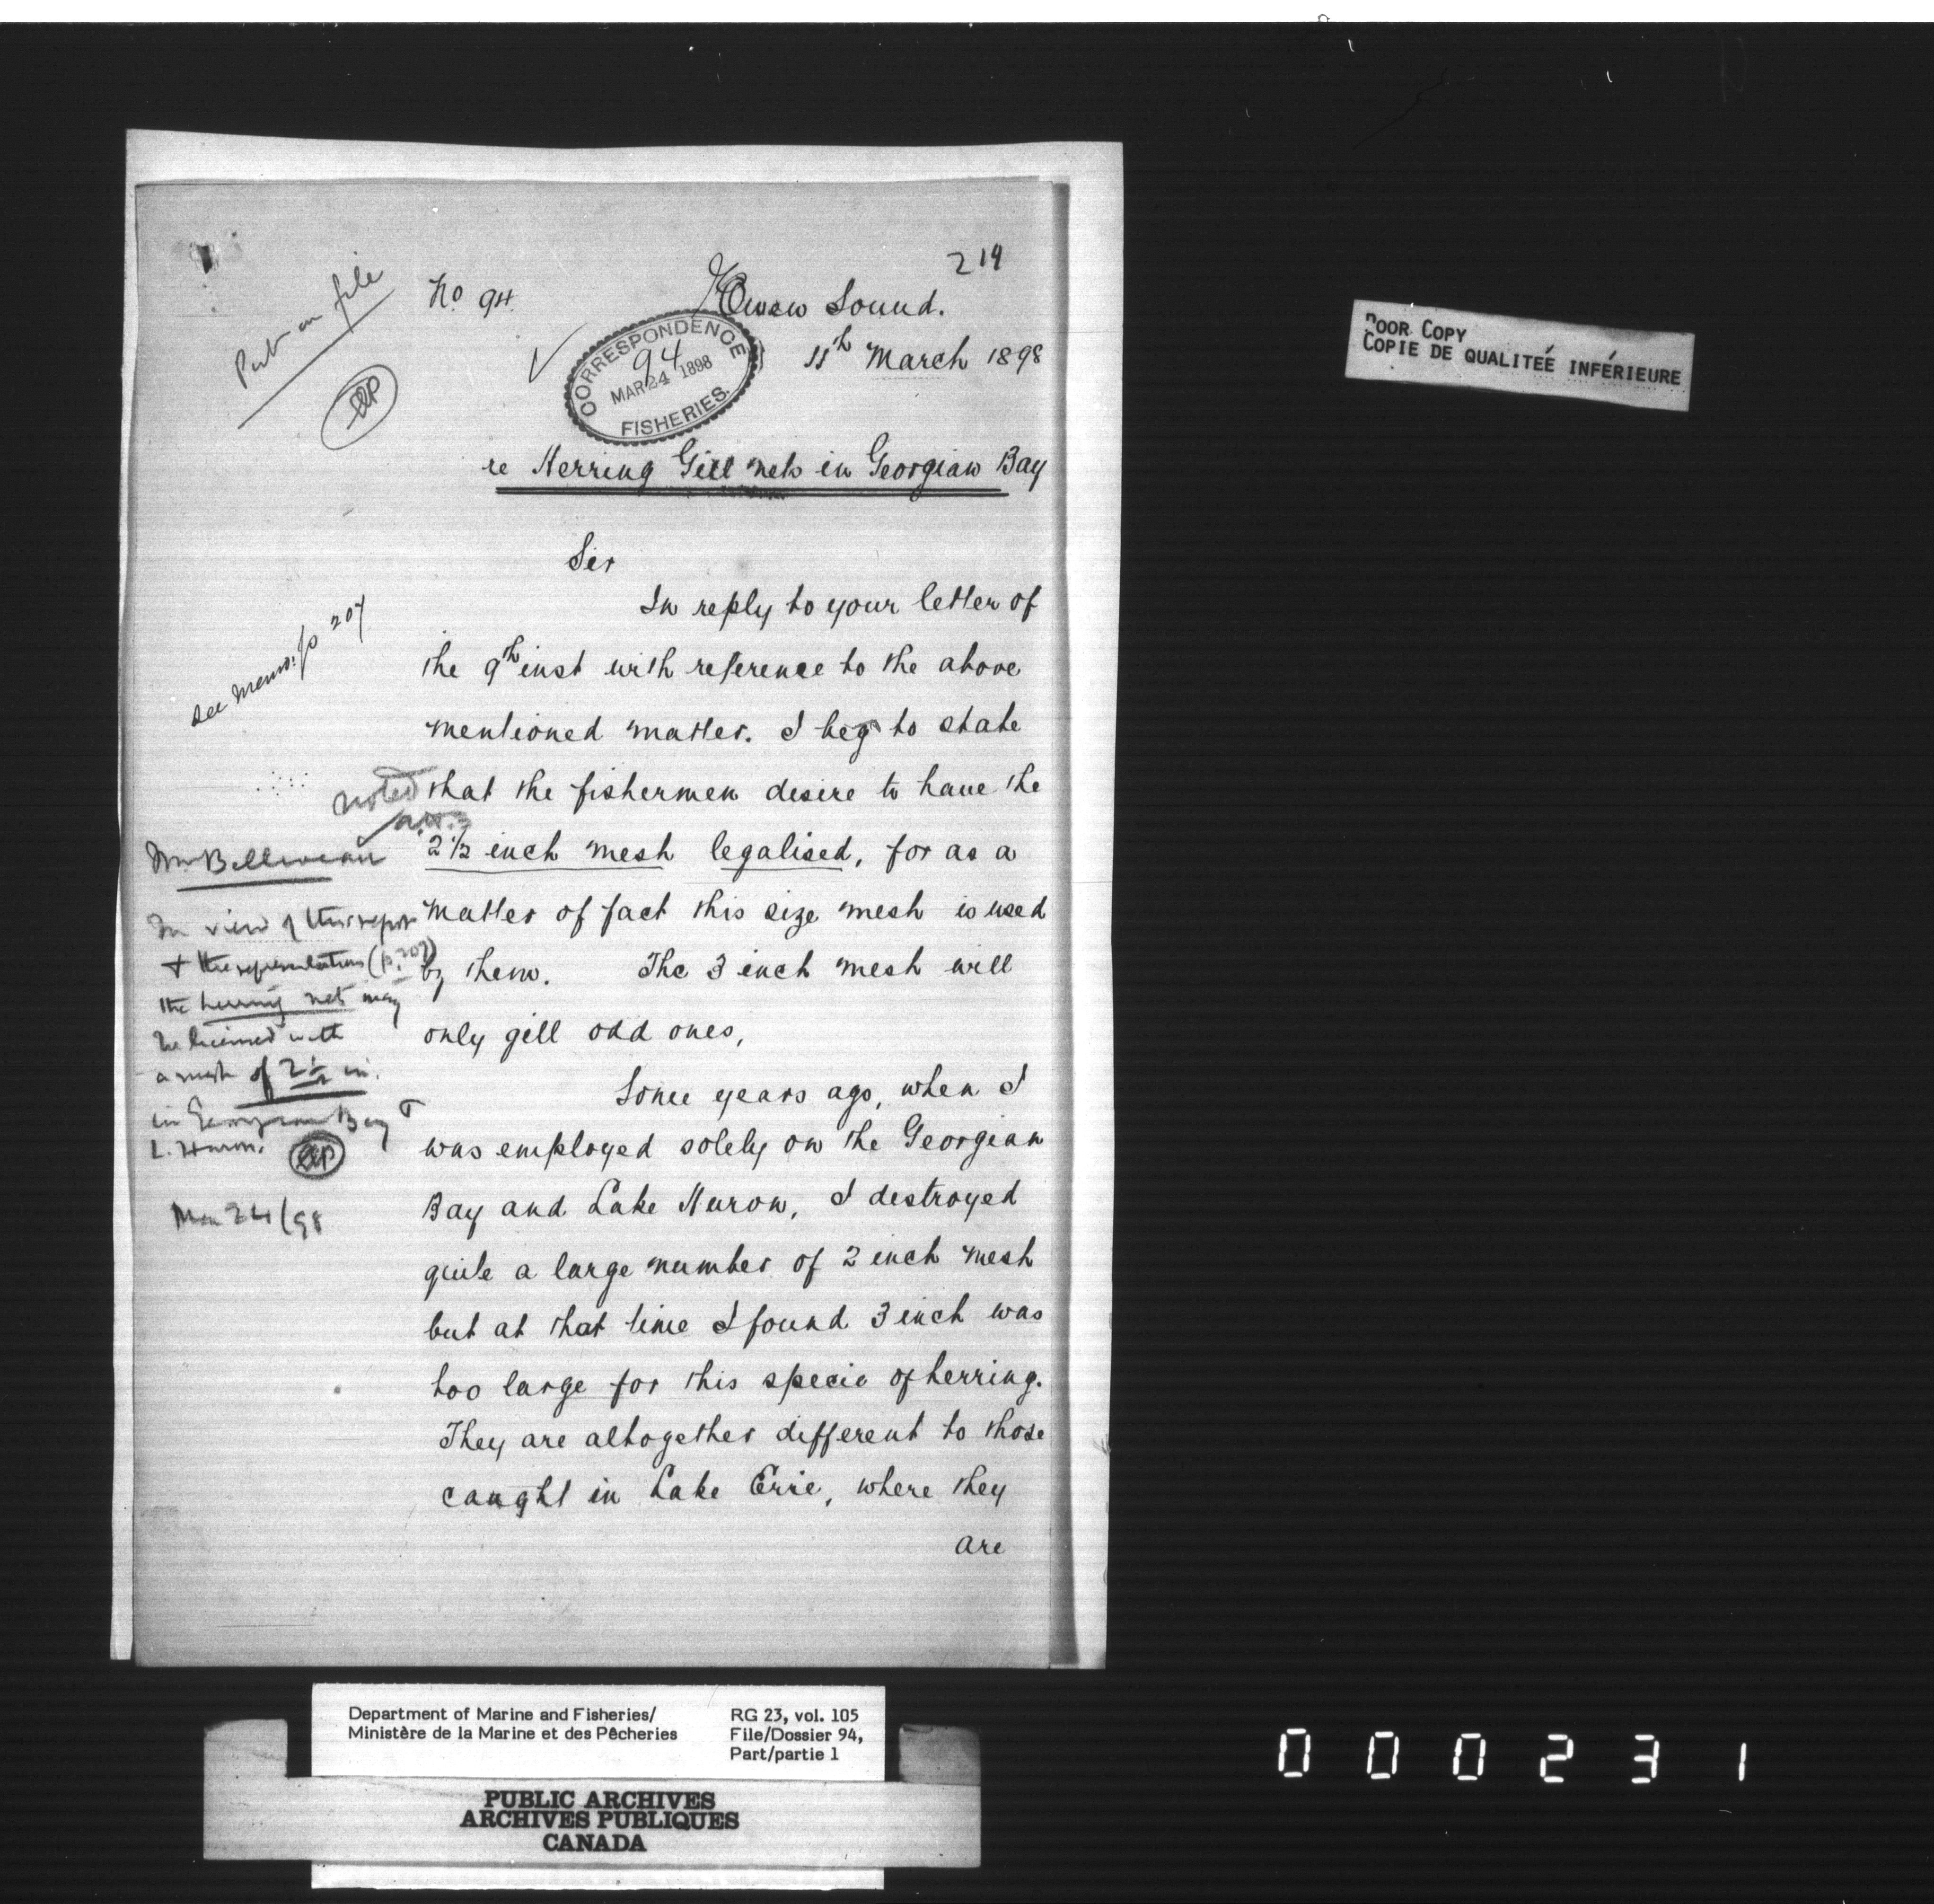 219
No. 94.
Owen Sound.
11th March 1898
Put on file
CORRESPONDENCE
94
MAR 24 1898
FISHERIES.
re Herring Gill nets in Georgian Bay
Sir
In reply to your letter of
the 9th inst with reference to the above
mentioned matter. I beg to state
that the fishermen desire to have the
2½ inch mesh legalised, for as a
matter of fact this size mesh is used
by them. The 3 inch mesh will
only gill odd ones,
Some years ago, when I
was employed solely on the Georgian
Bay and Lake Huron, I destroyed
quite a large number of 2 inch mesh
but at that time I found 3 inch was
too large for this specie of herring.
They are altogether different to those
caught in Lake Erie, where they
are
see memo. p 207
noted
Mr Belliveau
In view of this report
& the representation (p. 207)
the herring nets may
be licensed with
a mesh of 2½ in.
in Georgian Bay &
L. Huron.
Mar 24/98
POOR COPY
COPIE DE QUALITEÉ INFÉRIEURE
Department of Marine and Fisheries/
Ministère de la Marine et des Pêcheries
RG 23, vol. 105
File/Dossier 94,
Part/partie 1
PUBLIC ARCHIVES
ARCHIVES PUBLIQUES
CANADA
000231